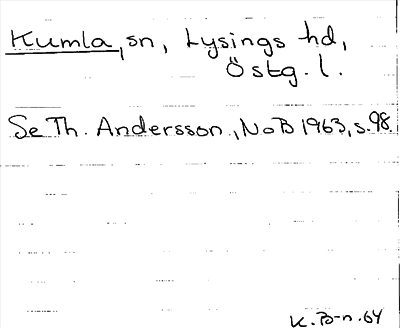 Kumla, sn, Lysings hd,
Östg. l.
Se Th. Andersson, NoB 1963, s. 98.
K. B-n. 64